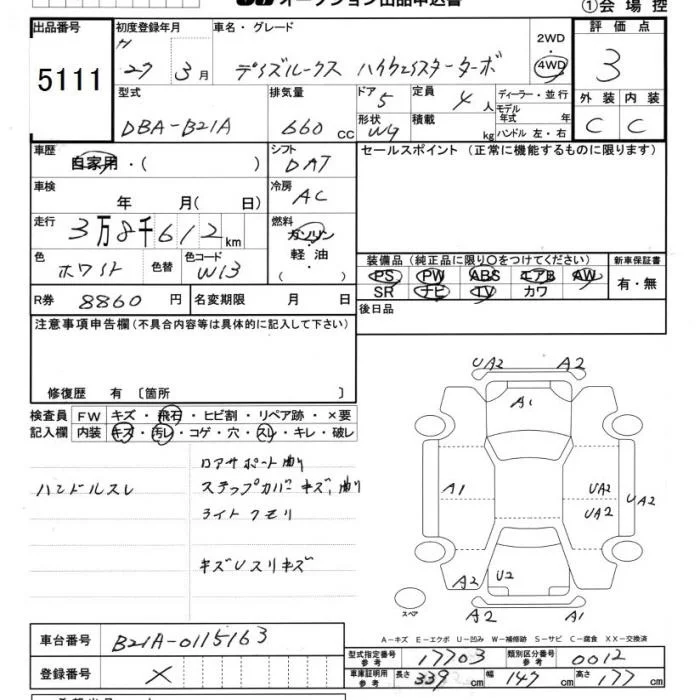 オークション出品申込書
①会場控
出品番号
5111
初度登録年月
H 27 3月
車名・グレード
デイズルークス ハイウェイスターターボ
2WD
4WD
評価点
3
外装 内装
C C
型式
DBA-B21A
排気量
660 CC
ドア
5
形状
Wg
定員
4人
積載
kg
ディーラー・並行
モデル年式 年
ハンドル 左・右
車歴
自家用・( )
シフト
DAT
車検
年 月( 日)
冷房
AC
走行
3万8千612km
燃料
ガソリン
軽油
( ・ )
色
ホワイト
色替
色コード
W13
R券 8860円
名変期限 月 日
セールスポイント(正常に機能するものに限ります)
装備品(純正品に限り○をつけてください)
PS PW ABS エアB AW
SR ナビ TV カワ
新車保証書
有・無
後日品
注意事項申告欄(不具合内容等は具体的に記入して下さい)
修復歴 有〔箇所 〕
検査員記入欄
FW キズ・飛石・ヒビ割・リペア跡・×要
内装 キズ・汚レ・コゲ・穴・スレ・キレ・破レ
ハンドルスレ
ロアサポート曲り
ステップカバーキズ,曲り
ライトクモリ
キズUスリキズ
UA2 A2
A1
A1
UA2
UA2
UA2
A2 U2
A2 A1
スペア
A-キズ E-エクボ U-凹み W-補修跡 S-サビ C-腐食 XX-交換済
車台番号 B21A-0115163
登録番号 ×
型式指定番号 参考 17703
類別区分番号 参考 0012
車庫証明用 参考 長さ 339cm 幅 147cm 高さ 177cm